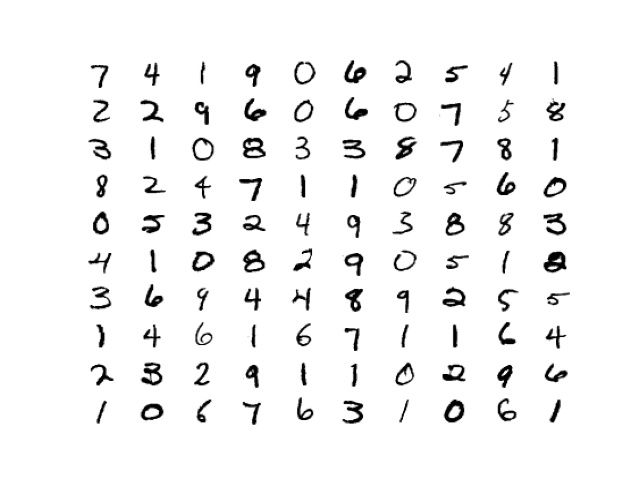 7 4 1 9 0 6 2 5 4 1
2 2 9 6 0 6 0 7 5 8
3 1 0 8 3 3 8 7 8 1
8 2 4 7 1 1 0 5 6 0
0 5 3 2 4 9 3 8 8 3
4 1 0 8 2 9 0 5 1 2
3 6 9 4 4 8 9 2 5 5
1 4 6 1 6 7 1 1 6 4
2 3 2 9 1 1 0 2 9 6
1 0 6 7 6 3 1 0 6 1